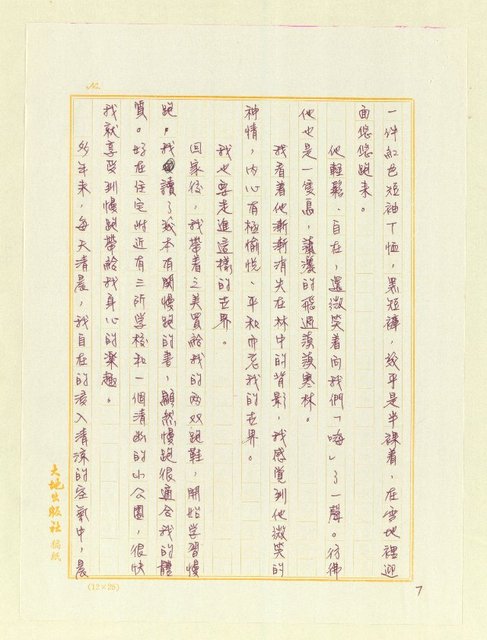 No.
一件紅色短袖T恤,黑短褲,幾乎是半裸着,在雪地裡迎
面悠悠跑來。
他輕鬆、自在 還微笑着向我們「嗨」了一聲。彷彿
他也是一隻鳥,瀟灑的飛過漠漠寒林。
我看着他漸漸消失在林中的背影,我感覺到他微笑的
神情,內心有極愉悅、平和而忘我的世界。
我也要走進這樣的世界。
回家後,我帶着之美買給我的兩双跑鞋,開始学習慢
跑。我讀了幾本有関慢跑的書,顯然慢跑很適合我的體
質。好在住宅附近有三所学校和一個清幽的小公園,很快
我就享受到慢跑帶給我身心的樂趣。
年來,每天清晨,我自在的投入清涼的空氣中,晨
大地出版社 稿紙
(12×25)
7